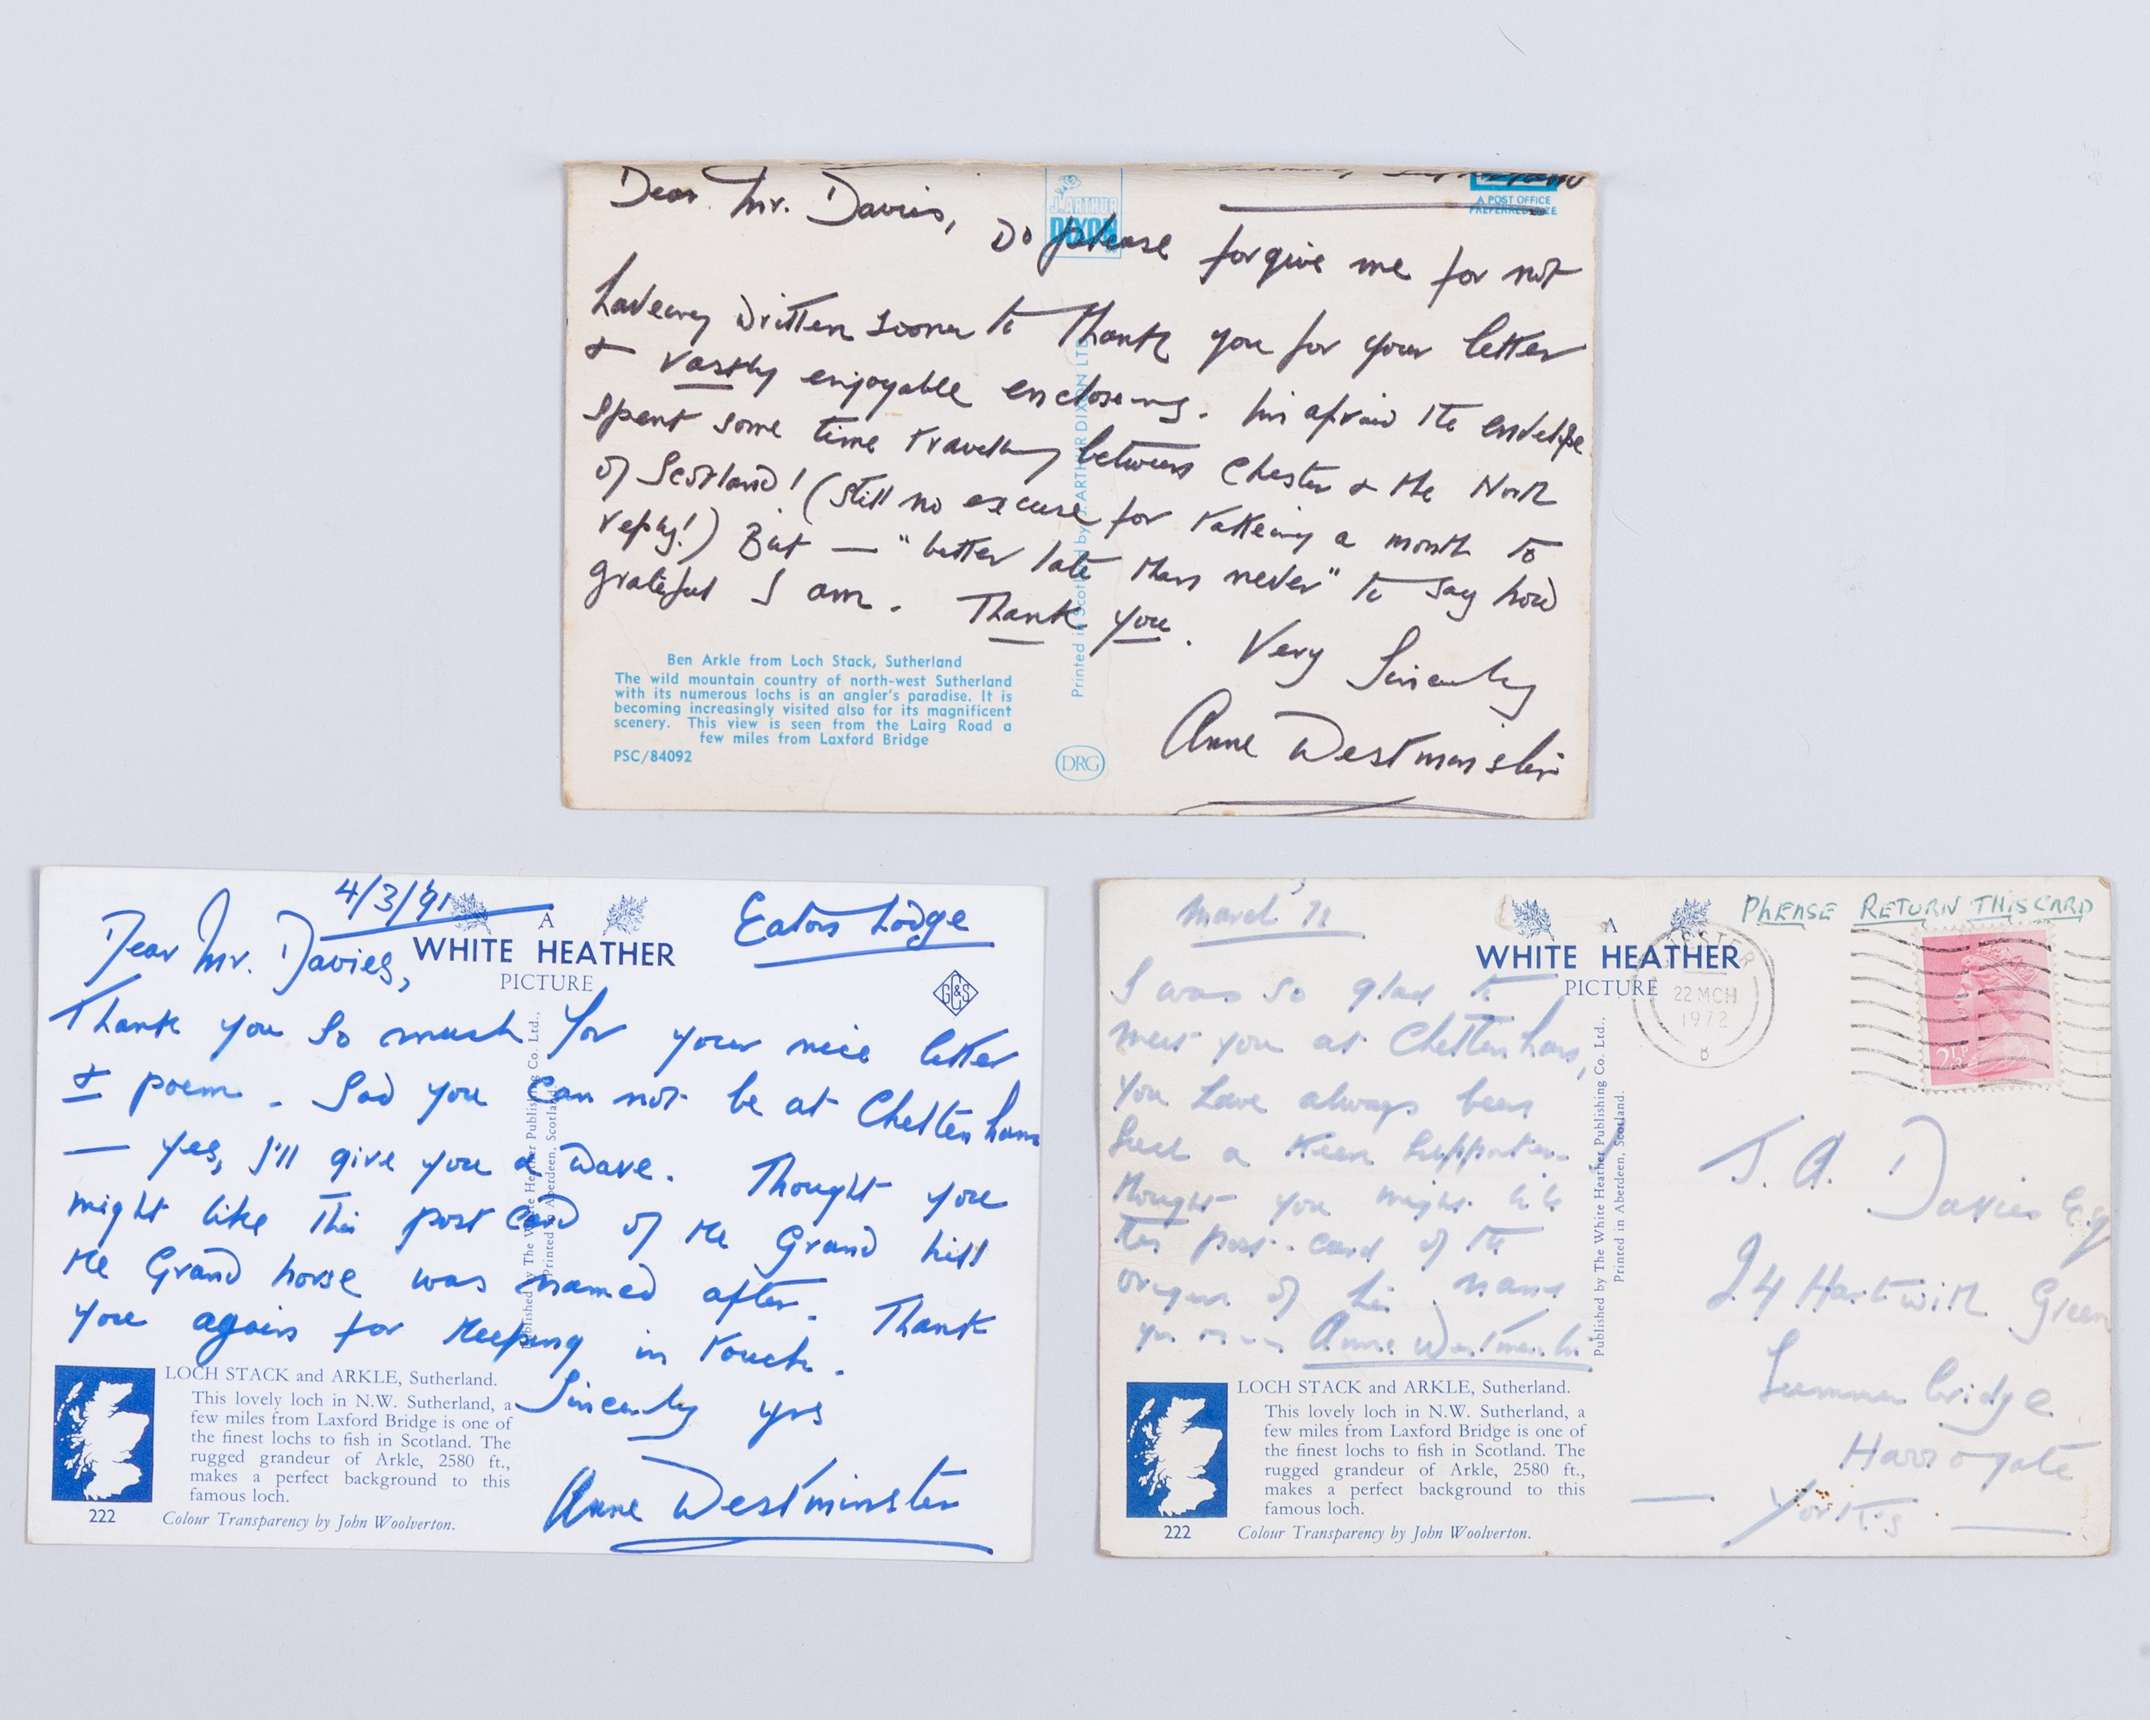 Dear Mr. Davies, Do please forgive me for not
haveing written sooner to thank you for your letter
& vastly enjoyable enclosing. I'm afraid the envelope
spent some time travelling between Chester & the North
of Scotland! (Still no excuse for takeing a month to
reply!) But — "better late than never" to say how
grateful I am. Thank you. Very Sincerely
Anne Westminster
J. ARTHUR
DIXON
A POST OFFICE
PREFERRED SIZE
Printed in Scotland by J. ARTHUR DIXON LTD.
Ben Arkle from Loch Stack, Sutherland
The wild mountain country of north-west Sutherland
with its numerous lochs is an angler's paradise. It is
becoming increasingly visited also for its magnificent
scenery. This view is seen from the Lairg Road a
few miles from Laxford Bridge
PSC/84092
DRG
4/3/91
Eaton Lodge
A
WHITE HEATHER
PICTURE
GC&S
Dear Mr. Davies,
Thank you so much for your nice letter
& poem. Sad you can not be at Cheltenham
— yes, I'll give you a wave. Thought you
might like this post card of the Grand hill
the Grand horse was named after. Thank
you again for keeping in touch.
Sincerely yrs
Anne Westminster
Published by The White Heather Publishing Co. Ltd.,
Printed in Aberdeen, Scotland.
LOCH STACK and ARKLE, Sutherland.
This lovely loch in N.W. Sutherland, a
few miles from Laxford Bridge is one of
the finest lochs to fish in Scotland. The
rugged grandeur of Arkle, 2580 ft.,
makes a perfect background to this
famous loch.
222
Colour Transparency by John Woolverton.
March 72
A
WHITE HEATHER
PICTURE
PLEASE RETURN THIS CARD
22 MCH
1972
B
2½P
I was so glad to
meet you at Cheltenham,
you have always been
such a keen supporter.
thought you might like
this post-card of the
origen of his name
Anne Westminster
J. A. Davies Esq
24 Hartwith Green
Summerbridge
Harrogate
Yorks
Published by The White Heather Publishing Co. Ltd.,
Printed in Aberdeen, Scotland.
LOCH STACK and ARKLE, Sutherland.
This lovely loch in N.W. Sutherland, a
few miles from Laxford Bridge is one of
the finest lochs to fish in Scotland. The
rugged grandeur of Arkle, 2580 ft.,
makes a perfect background to this
famous loch.
222
Colour Transparency by John Woolverton.